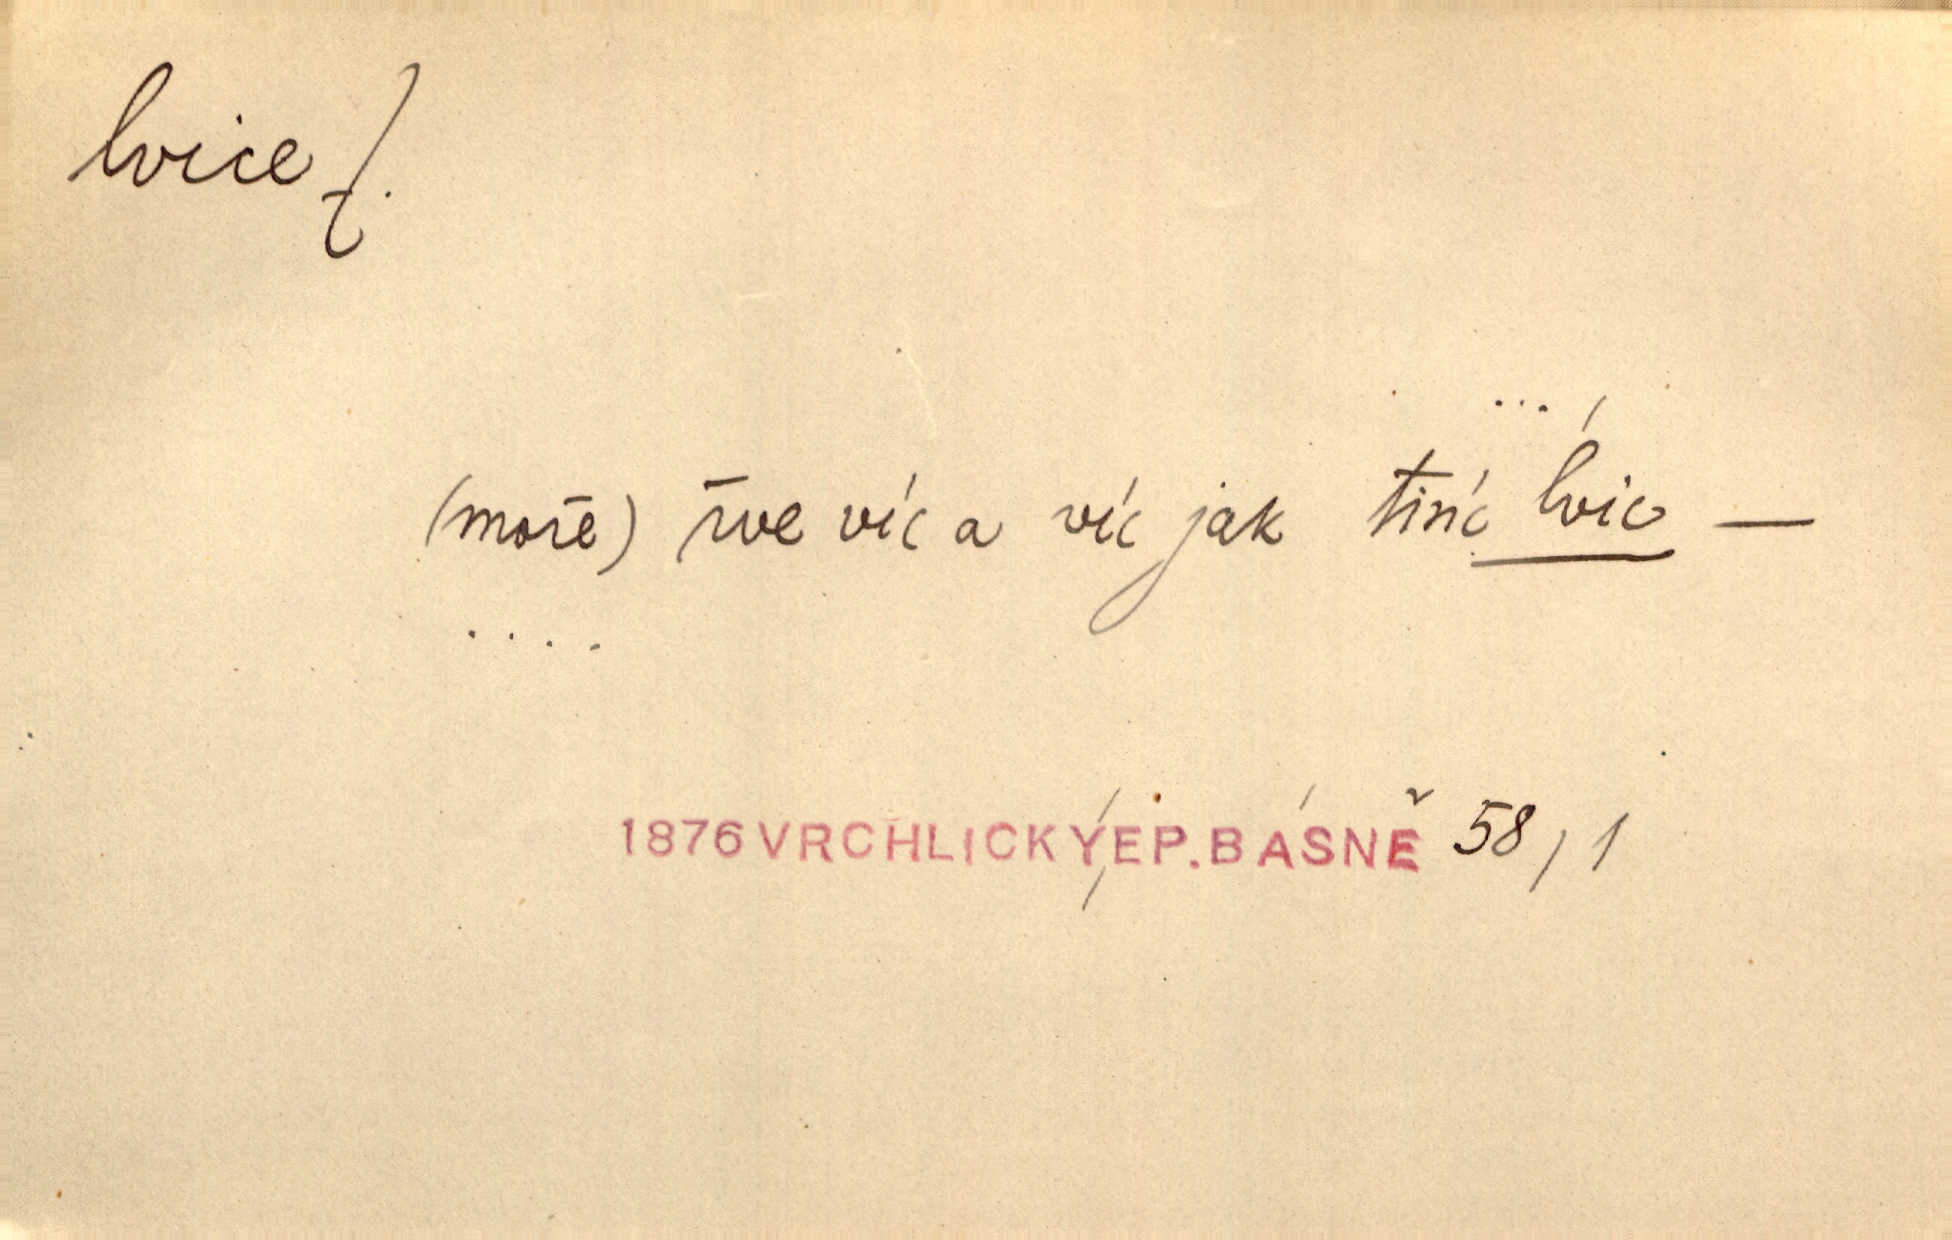 lvice f.
...
(moře) řve víc a víc jak tisíc lvic —
....
1876 VRCHLICKÝ EP. BÁSNĚ 58, 1